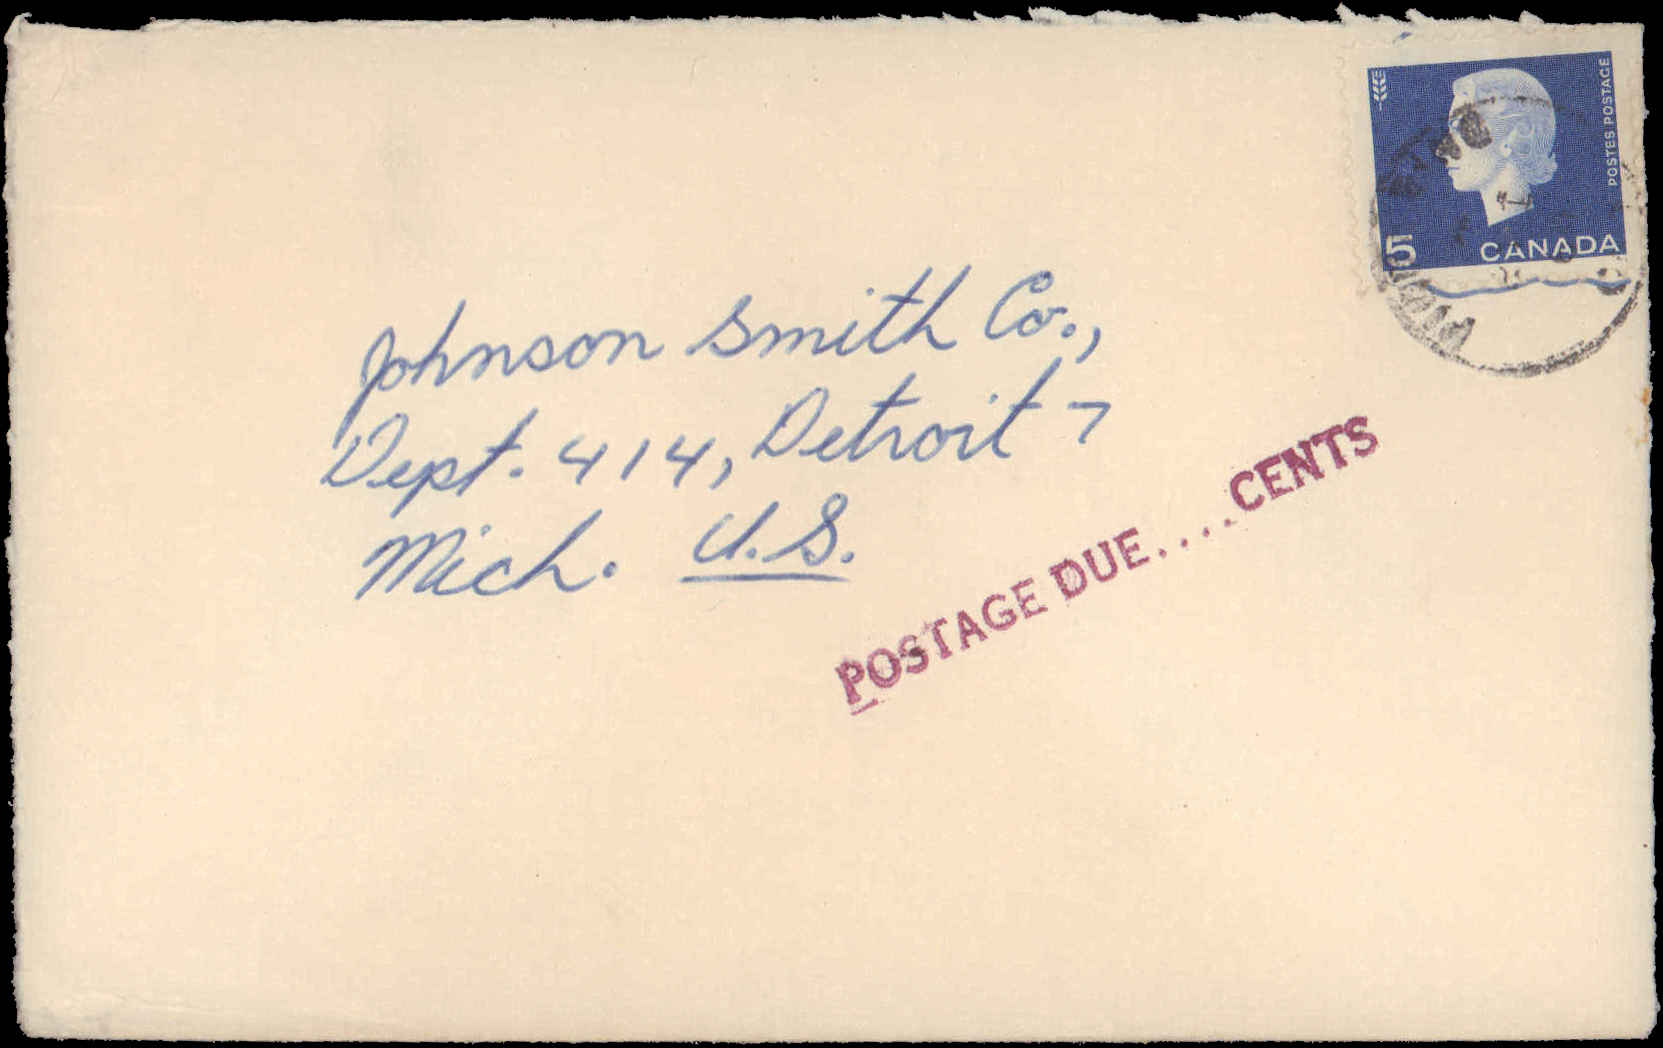 POSTES POSTAGE
5 CANADA
Johnson Smith Co.,
Dept. 414, Detroit 7
Mich. U.S.
POSTAGE DUE....CENTS